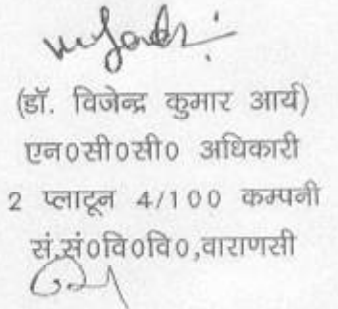 (डॉ. विजेन्द्र कुमार आर्य)
एन०सी०सी० अधिकारी
2 प्लाटून 4/100 कम्पनी
सं.सं०वि०वि०,वाराणसी